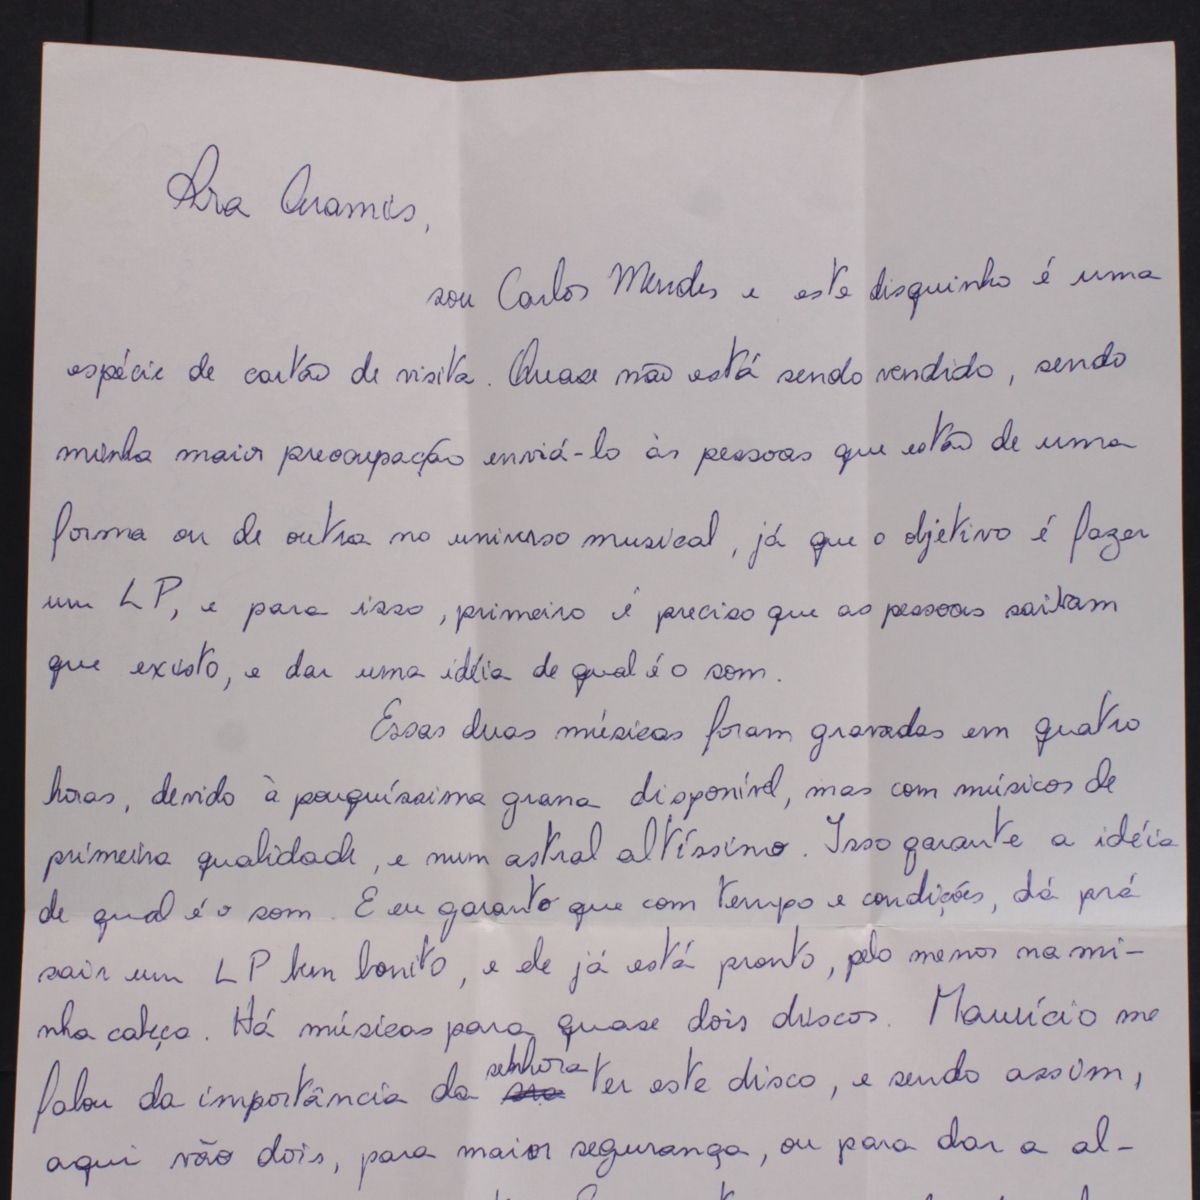 Sra Aramis,
sou Carlos Mendes e este disquinho é uma
espécie de cartão de visita. Quase não está sendo vendido, sendo
minha maior preocupação enviá-lo às pessoas que estão de uma
forma ou de outra no universo musical, já que o objetivo é fazer
um LP, e para isso, primeiro é preciso que as pessoas saibam
que existo, e dar uma idéia de qual é o som.
Essas duas músicas foram gravadas em quatro
horas, devido à pouquíssima grana disponível, mas com músicos de
primeira qualidade, e num astral altíssimo. Isso garante a idéia
de qual é o som. E eu garanto que com tempo e condições, dá prá
sair um LP bem bonito, e ele já está pronto, pelo menos na mi-
nha cabeça. Há músicas para quase dois discos. Maurício me
falou da importância da senhora ter este disco, e sendo assim,
aqui vão dois, para maior segurança, ou para dar a al-